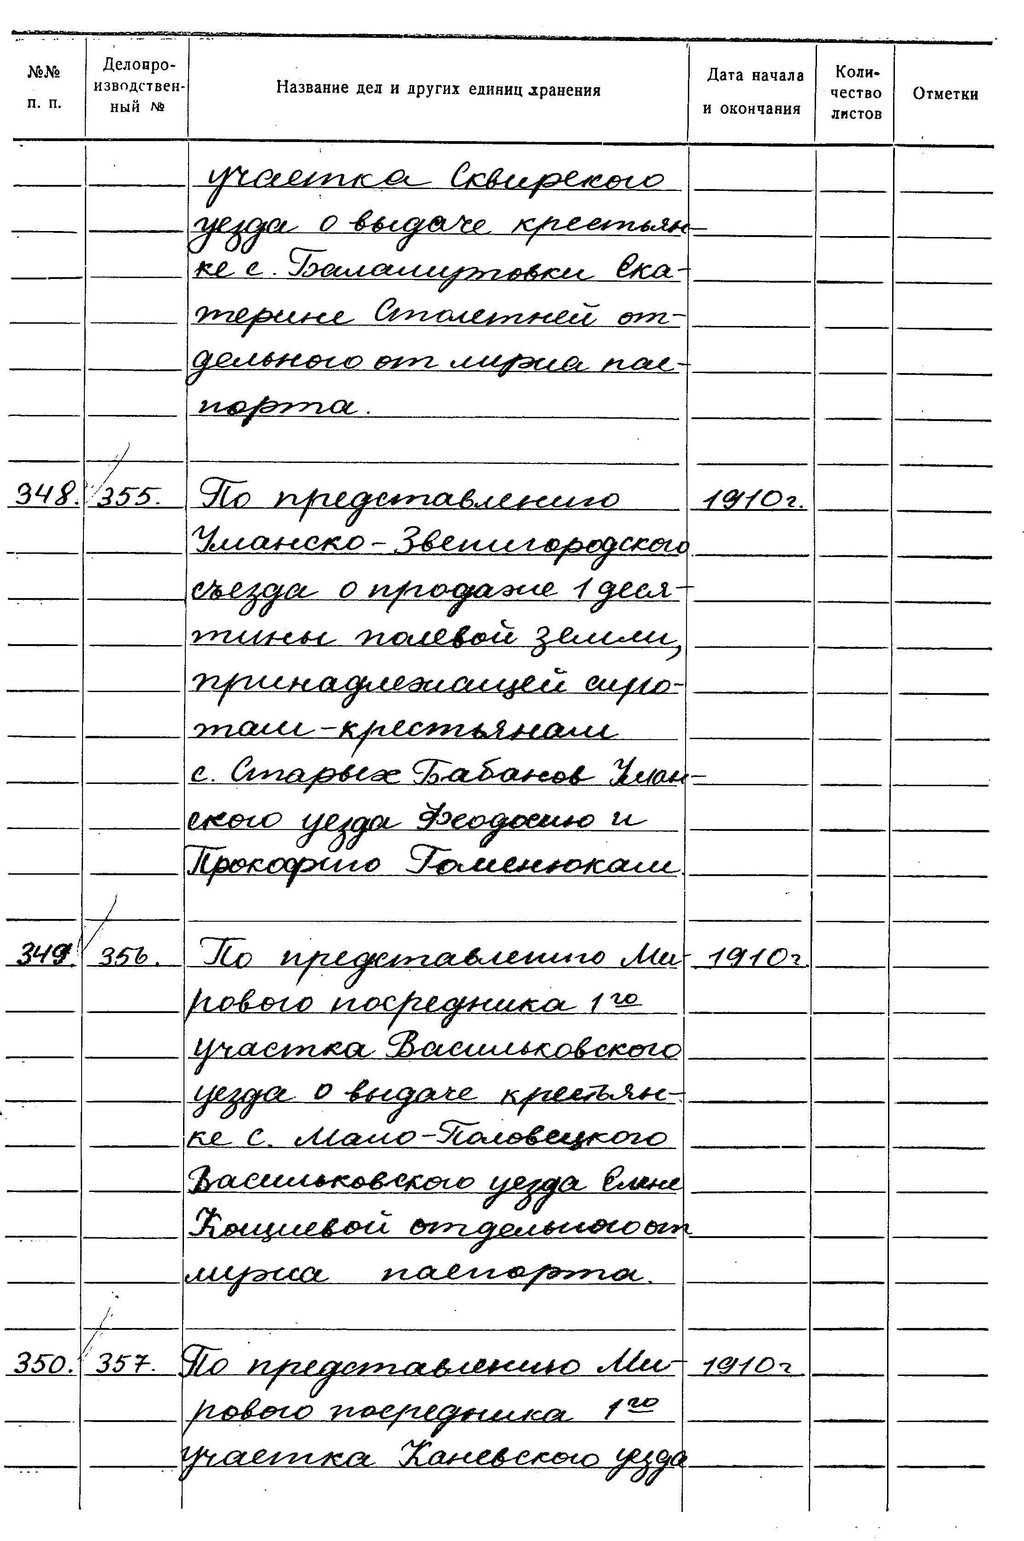 №№ п. п.
Делопроизводственный №
Название дел и других единиц хранения
Дата начала и окончания
Количество листов
Отметки
участка Сквирского
уезда о выдаче крестьян-
ке с. Баламутовки Ека-
терине Столетней от-
дельного от мужа пас-
порта.
348. 355. По представлению 1910 г.
Уманско-Звенигородского
съезда о продаже 1 деся-
тины полевой земли,
принадлежащей сиро-
там-крестьянам
с. Старых Бабанов Уман-
ского уезда Феодосию и
Прокофию Гоменюкам.
349. 356. По представлению Ми- 1910 г.
рового посредника 1го
участка Васильковского
уезда о выдаче крестьян-
ке с. Мало-Половецкого
Васильковского уезда Елене
Кощиевой отдельного от
мужа паспорта.
350. 357. По представлению Ми- 1910 г.
рового посредника 1го
участка Каневского уезда